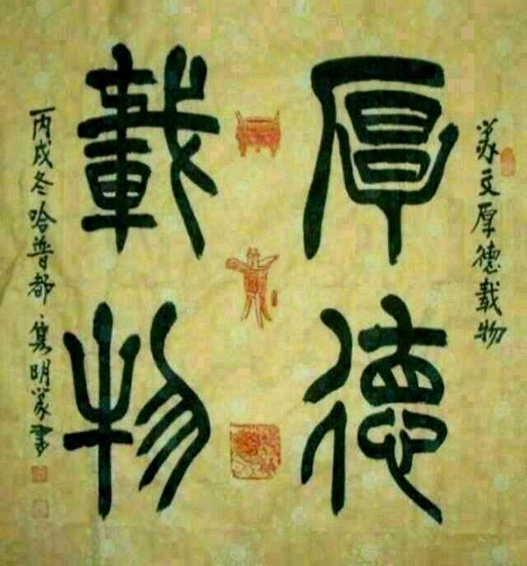 篆文厚德载物
厚德
載物
丙戌冬哈普都明篆书